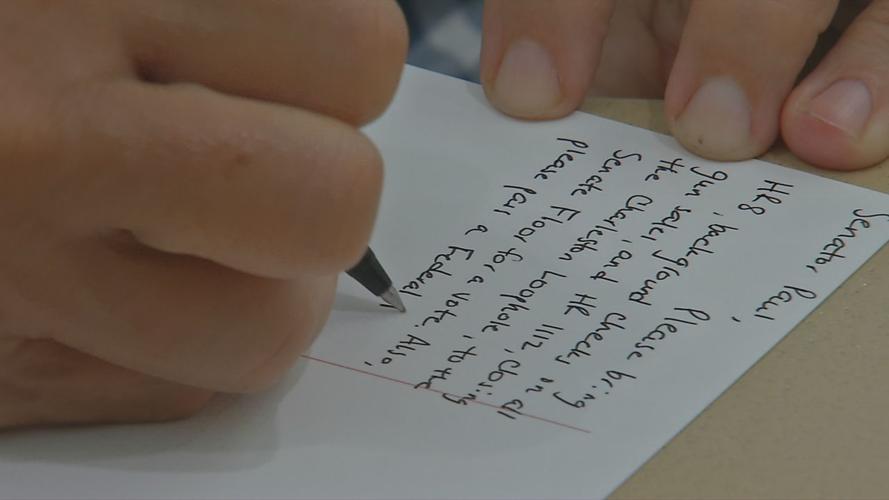 Senator Paul,
Please bring
HR8, background checks on all
gun sales, and HR 1112, closing
the Charleston Loophole, to the
Senate Floor for a vote. Also,
please pass a Federal